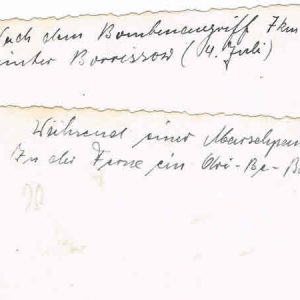 Nach dem Bombenangriff 7km
hinter Borrissow (4. Juli)
Während einer Marschpau
In der Ferne ein Ari-Be-B